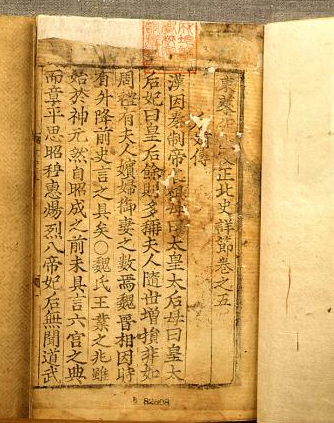 東萊先生校正北史詳節卷之五
后妃傳
漢因秦制帝之祖母曰太皇太后母曰皇太
后妃曰皇后餘則多稱夫人隨世增損非如
周禮有夫人嬪婦御妻之數焉魏晉相因時
有外降前史言之具矣○魏氏王業之兆雖
始於神元然自昭成之前未具言六宮之典
而章平思昭穆惠煬烈八帝妃后無聞道武
82608